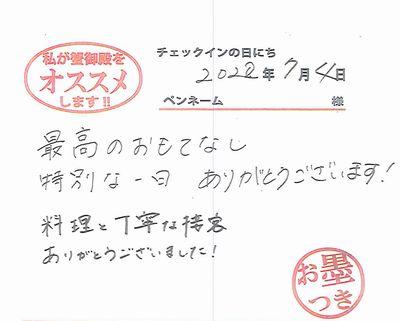 私が蟹御殿を
オススメ
します!!
チェックインの日にち
2022年7月4日
ペンネーム 様
最高のおもてなし
特別な一日 ありがとうございます!
料理と丁寧な接客
ありがとうございました!
お墨
つき